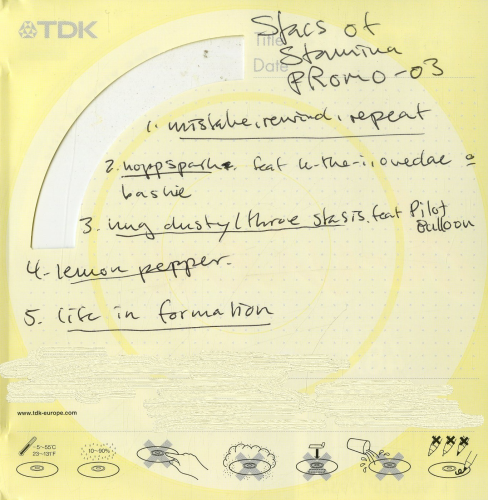 TDK
Title
Date
Stacs of
Stamina
PRomo-03
1. mistake, rewind, repeat
2. hoppspark. feat k-the-i, ovedae o
baskie
3. mg dusty/throe stasis. feat Pilot
Balloon
4. lemon pepper.
5. life in formation
www.tdk-europe.com
-5~55°C
23~131°F
10~90%